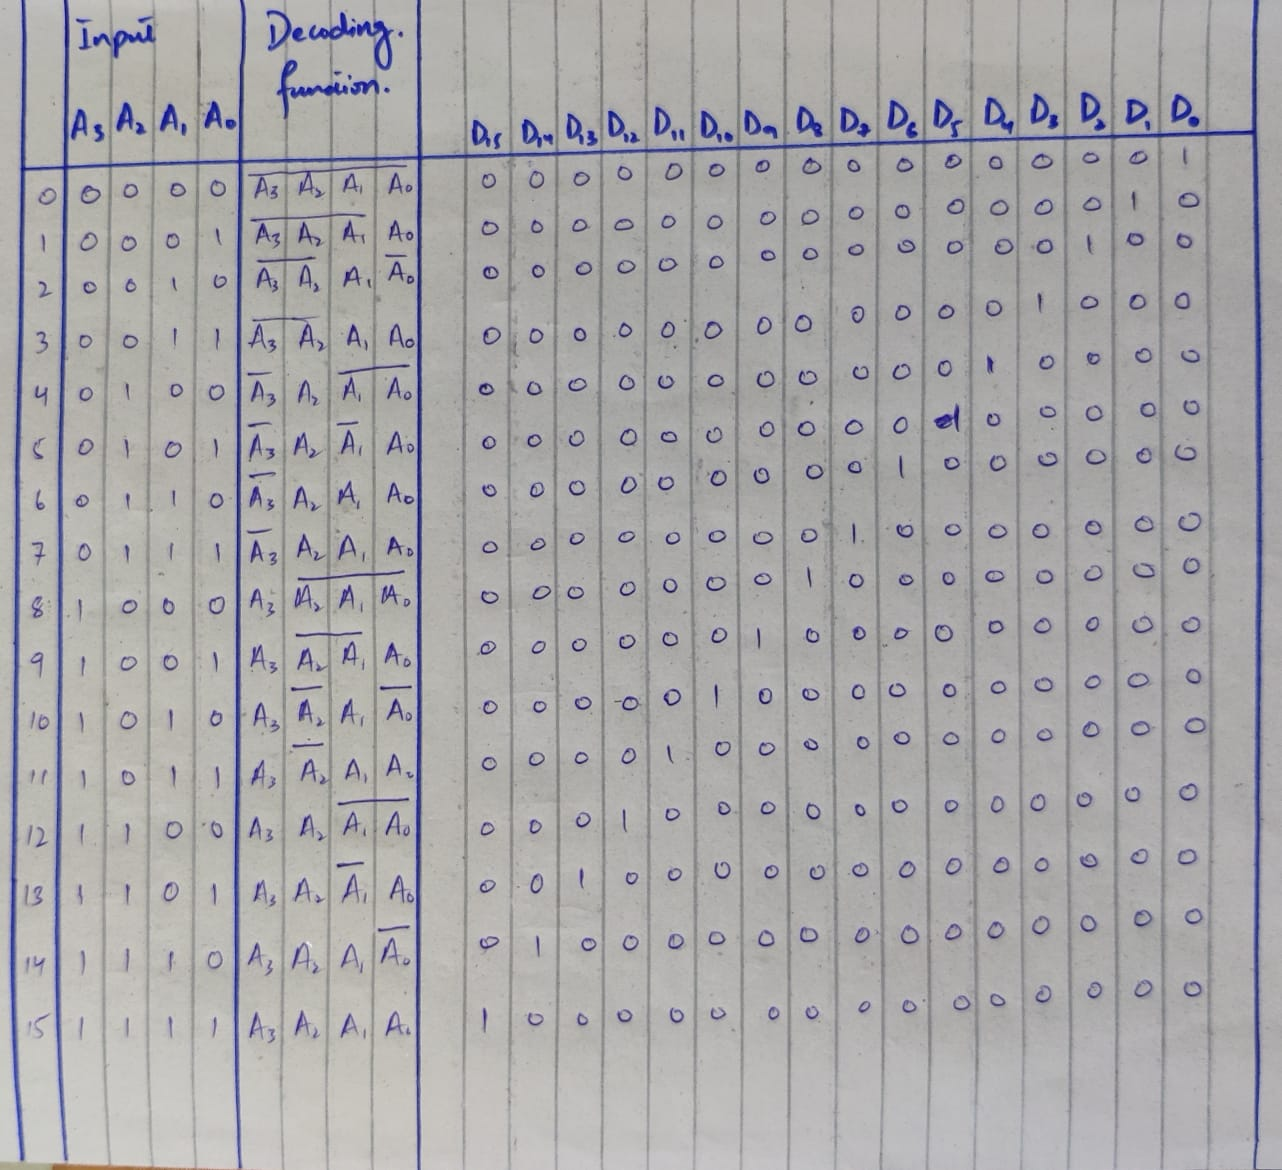 Input Decoding.
function.
A₃ A₂ A₁ A₀ D₁₅ D₁₄ D₁₃ D₁₂ D₁₁ D₁₀ D₉ D₈ D₇ D₆ D₅ D₄ D₃ D₂ D₁ D₀
0 0 0 0 0 A̅₃ A̅₂ A̅₁ A̅₀ 0 0 0 0 0 0 0 0 0 0 0 0 0 0 0 1
1 0 0 0 1 A̅₃ A̅₂ A̅₁ A₀ 0 0 0 0 0 0 0 0 0 0 0 0 0 0 1 0
2 0 0 1 0 A̅₃ A̅₂ A₁ A̅₀ 0 0 0 0 0 0 0 0 0 0 0 0 0 1 0 0
3 0 0 1 1 A̅₃ A̅₂ A₁ A₀ 0 0 0 0 0 0 0 0 0 0 0 0 1 0 0 0
4 0 1 0 0 A̅₃ A₂ A̅₁ A̅₀ 0 0 0 0 0 0 0 0 0 0 0 1 0 0 0 0
5 0 1 0 1 A̅₃ A₂ A̅₁ A₀ 0 0 0 0 0 0 0 0 0 0 1 0 0 0 0 0
6 0 1 1 0 A̅₃ A₂ A₁ A₀ 0 0 0 0 0 0 0 0 0 1 0 0 0 0 0 0
7 0 1 1 1 A̅₃ A₂ A₁ A₀ 0 0 0 0 0 0 0 0 1 0 0 0 0 0 0 0
8 1 0 0 0 A₃ A̅₂ A̅₁ A̅₀ 0 0 0 0 0 0 0 1 0 0 0 0 0 0 0 0
9 1 0 0 1 A₃ A̅₂ A̅₁ A₀ 0 0 0 0 0 0 1 0 0 0 0 0 0 0 0 0
10 1 0 1 0 A₃ A̅₂ A₁ A̅₀ 0 0 0 0 0 1 0 0 0 0 0 0 0 0 0 0
11 1 0 1 1 A₃ A̅₂ A₁ A₀ 0 0 0 0 1 0 0 0 0 0 0 0 0 0 0 0
12 1 1 0 0 A₃ A₂ A̅₁ A̅₀ 0 0 0 1 0 0 0 0 0 0 0 0 0 0 0 0
13 1 1 0 1 A₃ A₂ A̅₁ A₀ 0 0 1 0 0 0 0 0 0 0 0 0 0 0 0 0
14 1 1 1 0 A₃ A₂ A₁ A̅₀ 0 1 0 0 0 0 0 0 0 0 0 0 0 0 0 0
15 1 1 1 1 A₃ A₂ A₁ A₀ 1 0 0 0 0 0 0 0 0 0 0 0 0 0 0 0